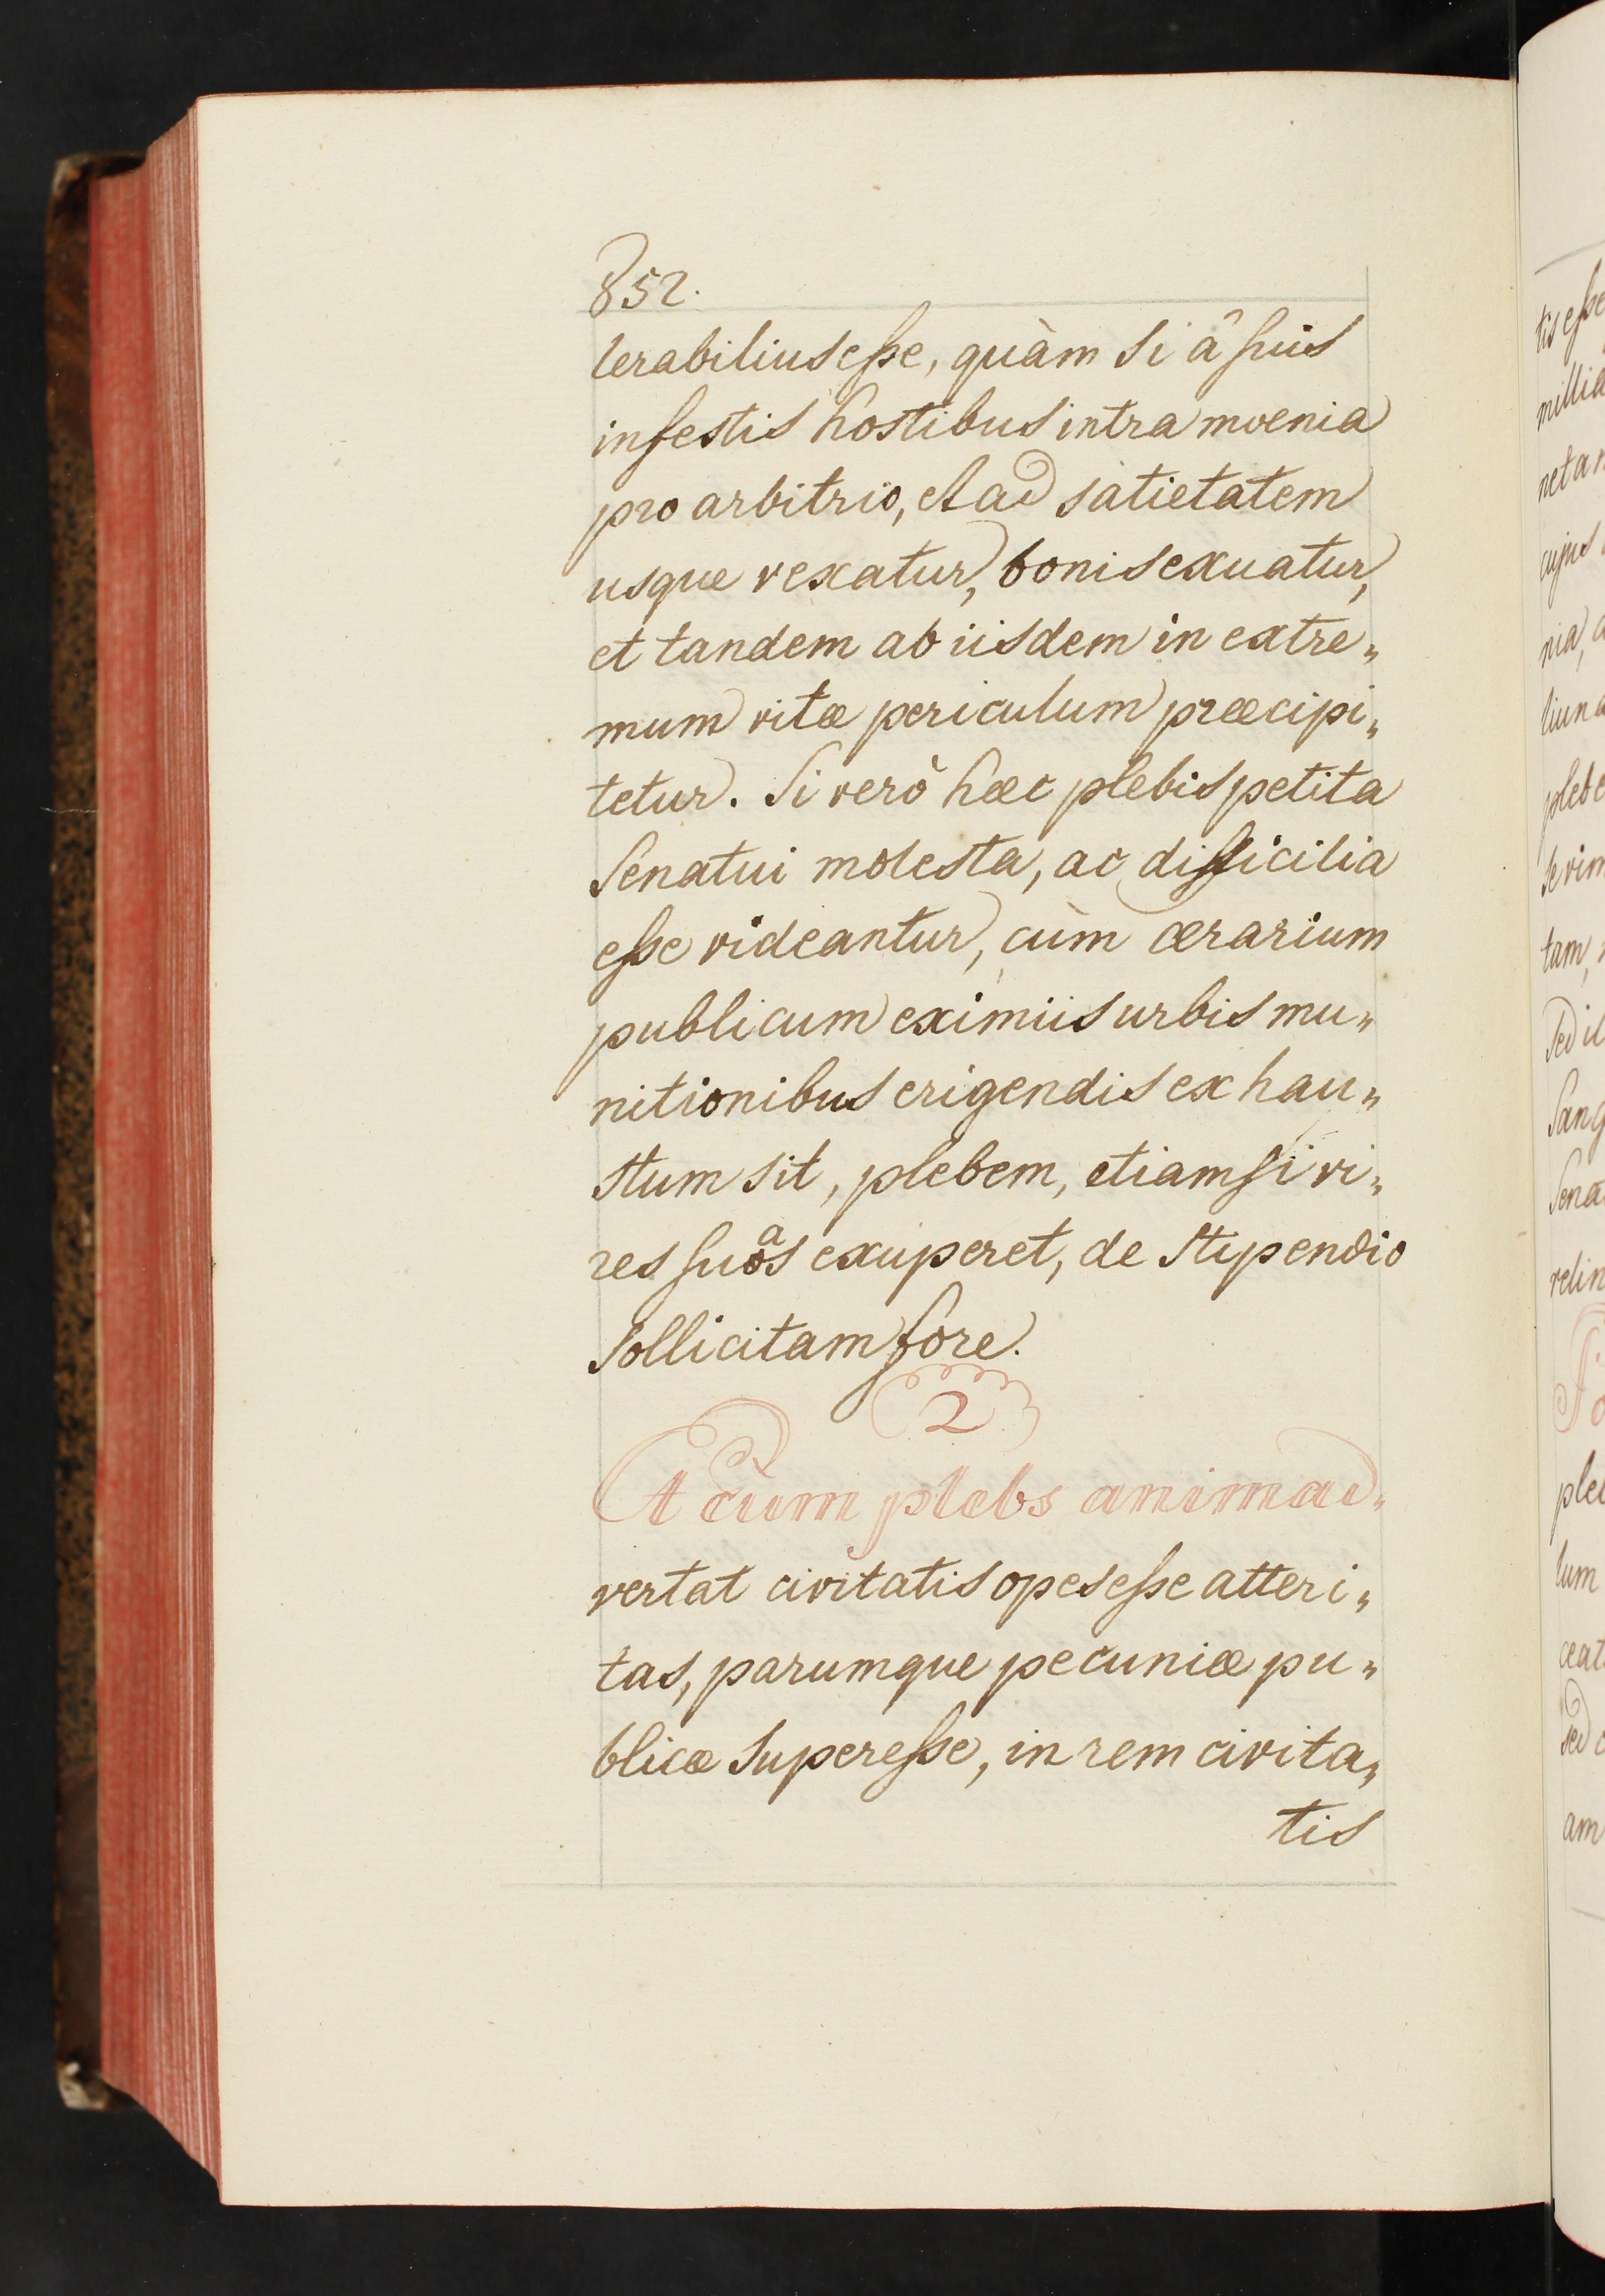 852.
lerabilius esse, quàm si â suis
infestis hostibus intra moenia
pro arbitrio, et ad satietatem
usque vexatur, bonis exuatur,
et tandem ab iisdem in extre„
mum vitæ periculum præcipi„
tetur. Si verò hæc plebis petita
Senatui molesta, ac difficilia
esse videantur, cùm ærarium
publicum eximiis urbis mu„
nitionibus erigendis exhau„
stum sit, plebem, etiamsi vi„
res suas exuperet, de stipendio
sollicitam fore.
2
At cùm plebs animad„
vertat civitatis opes esse atteri„
tas, parumque pecuniæ pu„
blicæ superesse, in rem civita„
tis